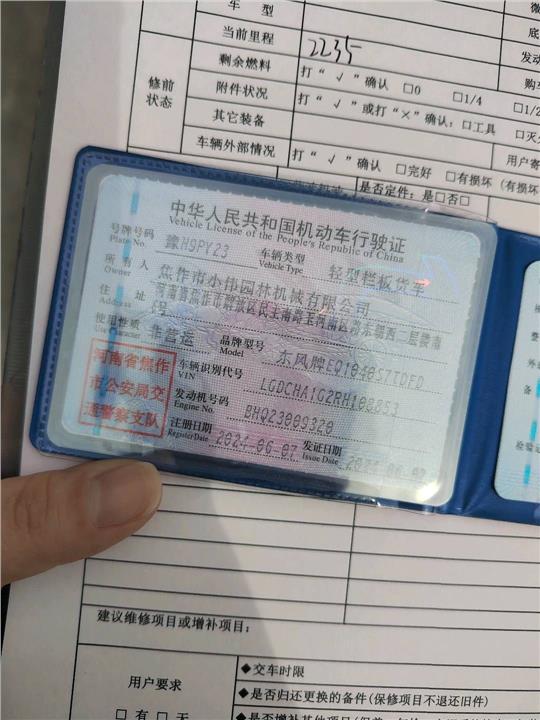 车 型
当前里程
2235
剩余燃料
打“√”确认 □0 □1/4 □1/2
修前状态
附件状况
打“√”或打“×”确认：□工具 □灭
其它装备
车辆外部情况
打“√”确认 □完好 □有损坏 (有损坏
用户寄
购车
发动
底
微
是否定件：是□否□
中华人民共和国机动车行驶证
Vehicle License of the People's Republic of China
号牌号码 豫H9PY23 车辆类型 轻型栏板货车
Plate No. Vehicle Type
所有人 焦作市小伟园林机械有限公司
Owner
住址 河南省焦作市解放区民主南路玉河南区
Address 号
使用性质 非营运 品牌型号 东风牌EQ1040S7TDFD
Use Character Model
车辆识别代号 LGDCHA1G2RH108853
VIN
发动机号码 BHQ23009320
Engine No.
注册日期 2024-06-07 发证日期 2024-06-07
Register Date Issue Date
河南省焦作
市公安局交
通警察支队
备
检验
建议维修项目或增补项目：
用户要求
□ 有 □ 无
◆交车时限
◆是否归还更换的备件(保修项目不退还旧件)